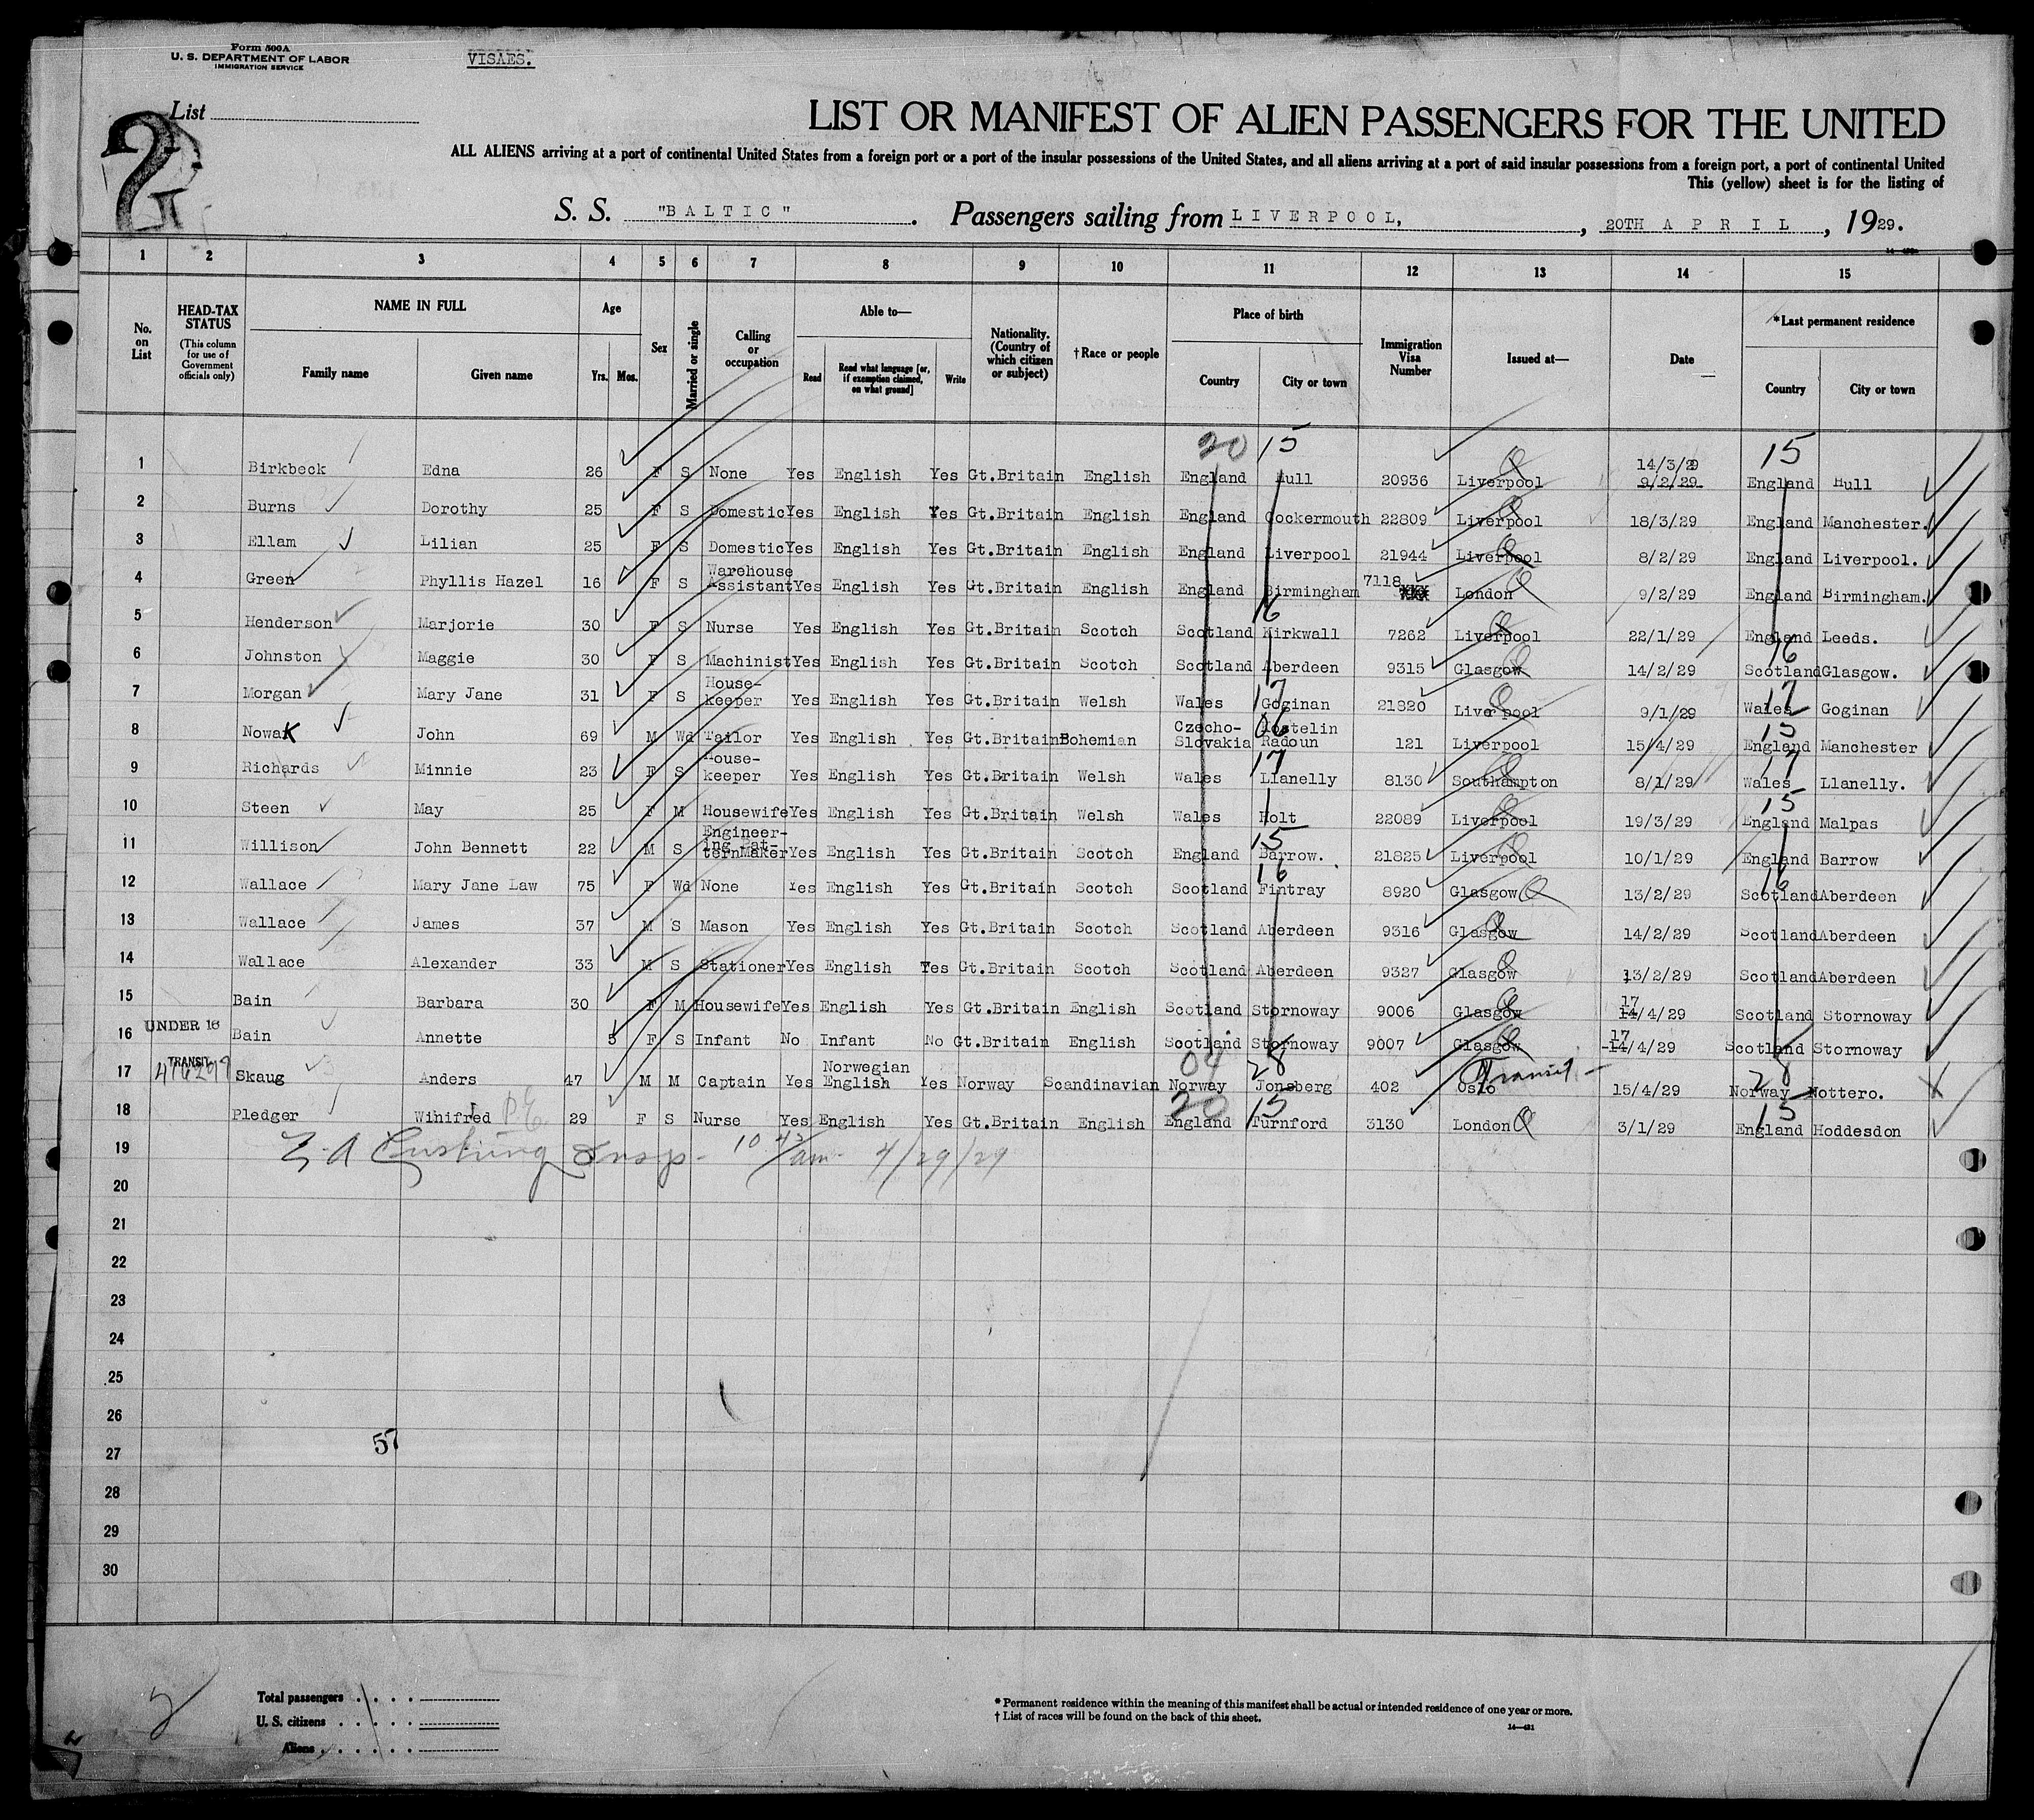 Form 500A
U. S. DEPARTMENT OF LABOR
IMMIGRATION SERVICE
VISAES.
List
2
LIST OR MANIFEST OF ALIEN PASSENGERS FOR THE UNITED
ALL ALIENS arriving at a port of continental United States from a foreign port or a port of the insular possessions of the United States, and all aliens arriving at a port of said insular possessions from a foreign port, a port of continental United
This (yellow) sheet is for the listing of
S. S. "BALTIC" . Passengers sailing from LIVERPOOL, , 20TH APRIL , 1929.
1 2 3 4 5 6 7 8 9 10 11 12 13 14 15
No. on List HEAD-TAX STATUS (This column for use of Government officials only) NAME IN FULL Family name Given name Age Yrs. Mos. Sex Married or single Calling or occupation Able to— Read Read what language [or, if exemption claimed, on what ground] Write Nationality. (Country of which citizen or subject) †Race or people Place of birth Country City or town Immigration Visa Number Issued at— Date *Last permanent residence Country City or town
20 15 15
1 Birkbeck Edna 26 F S None Yes English Yes Gt.Britain English England Hull 20936 Liverpool 14/3/29 9/2/29 England Hull
2 Burns Dorothy 25 F S Domestic Yes English Yes Gt.Britain English England Cockermouth 22809 Liverpool 18/3/29 England Manchester.
3 Ellam Lilian 25 F S Domestic Yes English Yes Gt.Britain English England Liverpool 21944 Liverpool 8/2/29 England Liverpool.
4 Green Phyllis Hazel 16 F S Warehouse Assistant Yes English Yes Gt.Britain English England Birmingham 7118 XXX London 9/2/29 England Birmingham.
5 Henderson Marjorie 30 F S Nurse Yes English Yes Gt.Britain Scotch Scotland 16 Kirkwall 7262 Liverpool 22/1/29 England Leeds.
6 Johnston Maggie 30 F S Machinist Yes English Yes Gt.Britain Scotch Scotland Aberdeen 9315 Glasgow 14/2/29 16 Scotland Glasgow.
7 Morgan Mary Jane 31 F S House-keeper Yes English Yes Gt.Britain Welsh Wales 17 Goginan 21820 Liverpool 9/1/29 17 Wales Goginan
8 Nowak John 69 M Wd Tailor Yes English Yes Gt.Britain Bohemian Czecho-Slovakia 06 Kostelin Radoun 121 Liverpool 15/4/29 15 England Manchester
9 Richards Minnie 23 F S House-keeper Yes English Yes Gt.Britain Welsh Wales 17 Llanelly 8130 Southampton 8/1/29 17 Wales Llanelly.
10 Steen May 25 F M Housewife Yes English Yes Gt.Britain Welsh Wales Holt 22089 Liverpool 19/3/29 15 England Malpas
11 Willison John Bennett 22 M S Engineer-ing Pat-ternmaker Yes English Yes Gt.Britain Scotch England 15 Barrow. 21825 Liverpool 10/1/29 England Barrow
12 Wallace Mary Jane Law 75 F Wd None Yes English Yes Gt.Britain Scotch Scotland 16 Fintray 8920 Glasgow 13/2/29 16 Scotland Aberdeen
13 Wallace James 37 M S Mason Yes English Yes Gt.Britain Scotch Scotland Aberdeen 9316 Glasgow 14/2/29 Scotland Aberdeen
14 Wallace Alexander 33 M S Stationer Yes English Yes Gt.Britain Scotch Scotland Aberdeen 9327 Glasgow 13/2/29 Scotland Aberdeen
15 Bain Barbara 30 F M Housewife Yes English Yes Gt.Britain English Scotland Stornoway 9006 Glasgow 17 14/4/29 Scotland Stornoway
16 UNDER 16 Bain Annette 5 F S Infant No Infant No Gt.Britain English Scotland Stornoway 9007 Glasgow 17 14/4/29 Scotland Stornoway
17 TRANSIT Skaug Anders 47 M M Captain Yes Norwegian English Yes Norway Scandinavian 04 Norway 28 Jonsberg 402 Oslo Transit 15/4/29 28 Norway Nottero.
18 Pledger Winifred P.E. 29 F S Nurse Yes English Yes Gt.Britain English 20 England 15 Turnford 3130 London 3/1/29 15 England Hoddesdon
19 E. A Cushing Insp. 10 45/am 4/29/29
20
21
22
23
24
25
26
57
27
28
29
30
Total passengers
U. S. citizens
Aliens
* Permanent residence within the meaning of this manifest shall be actual or intended residence of one year or more.
† List of races will be found on the back of this sheet.
14—421